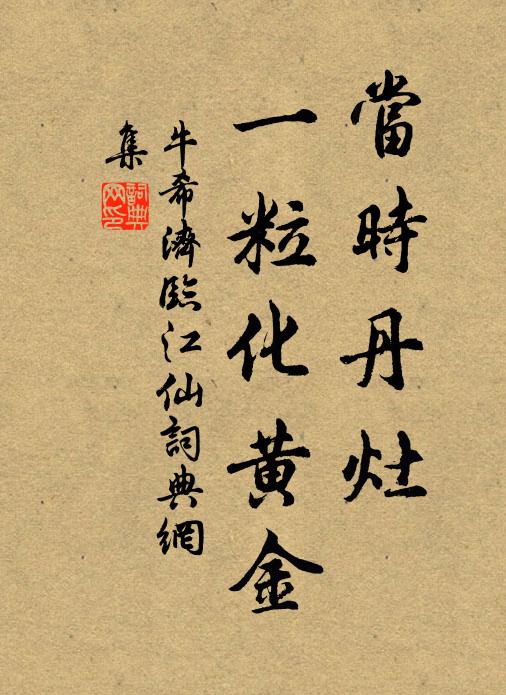 當時丹灶
一粒化黄金
牛希濟臨江仙詞典網
集
詞典网印